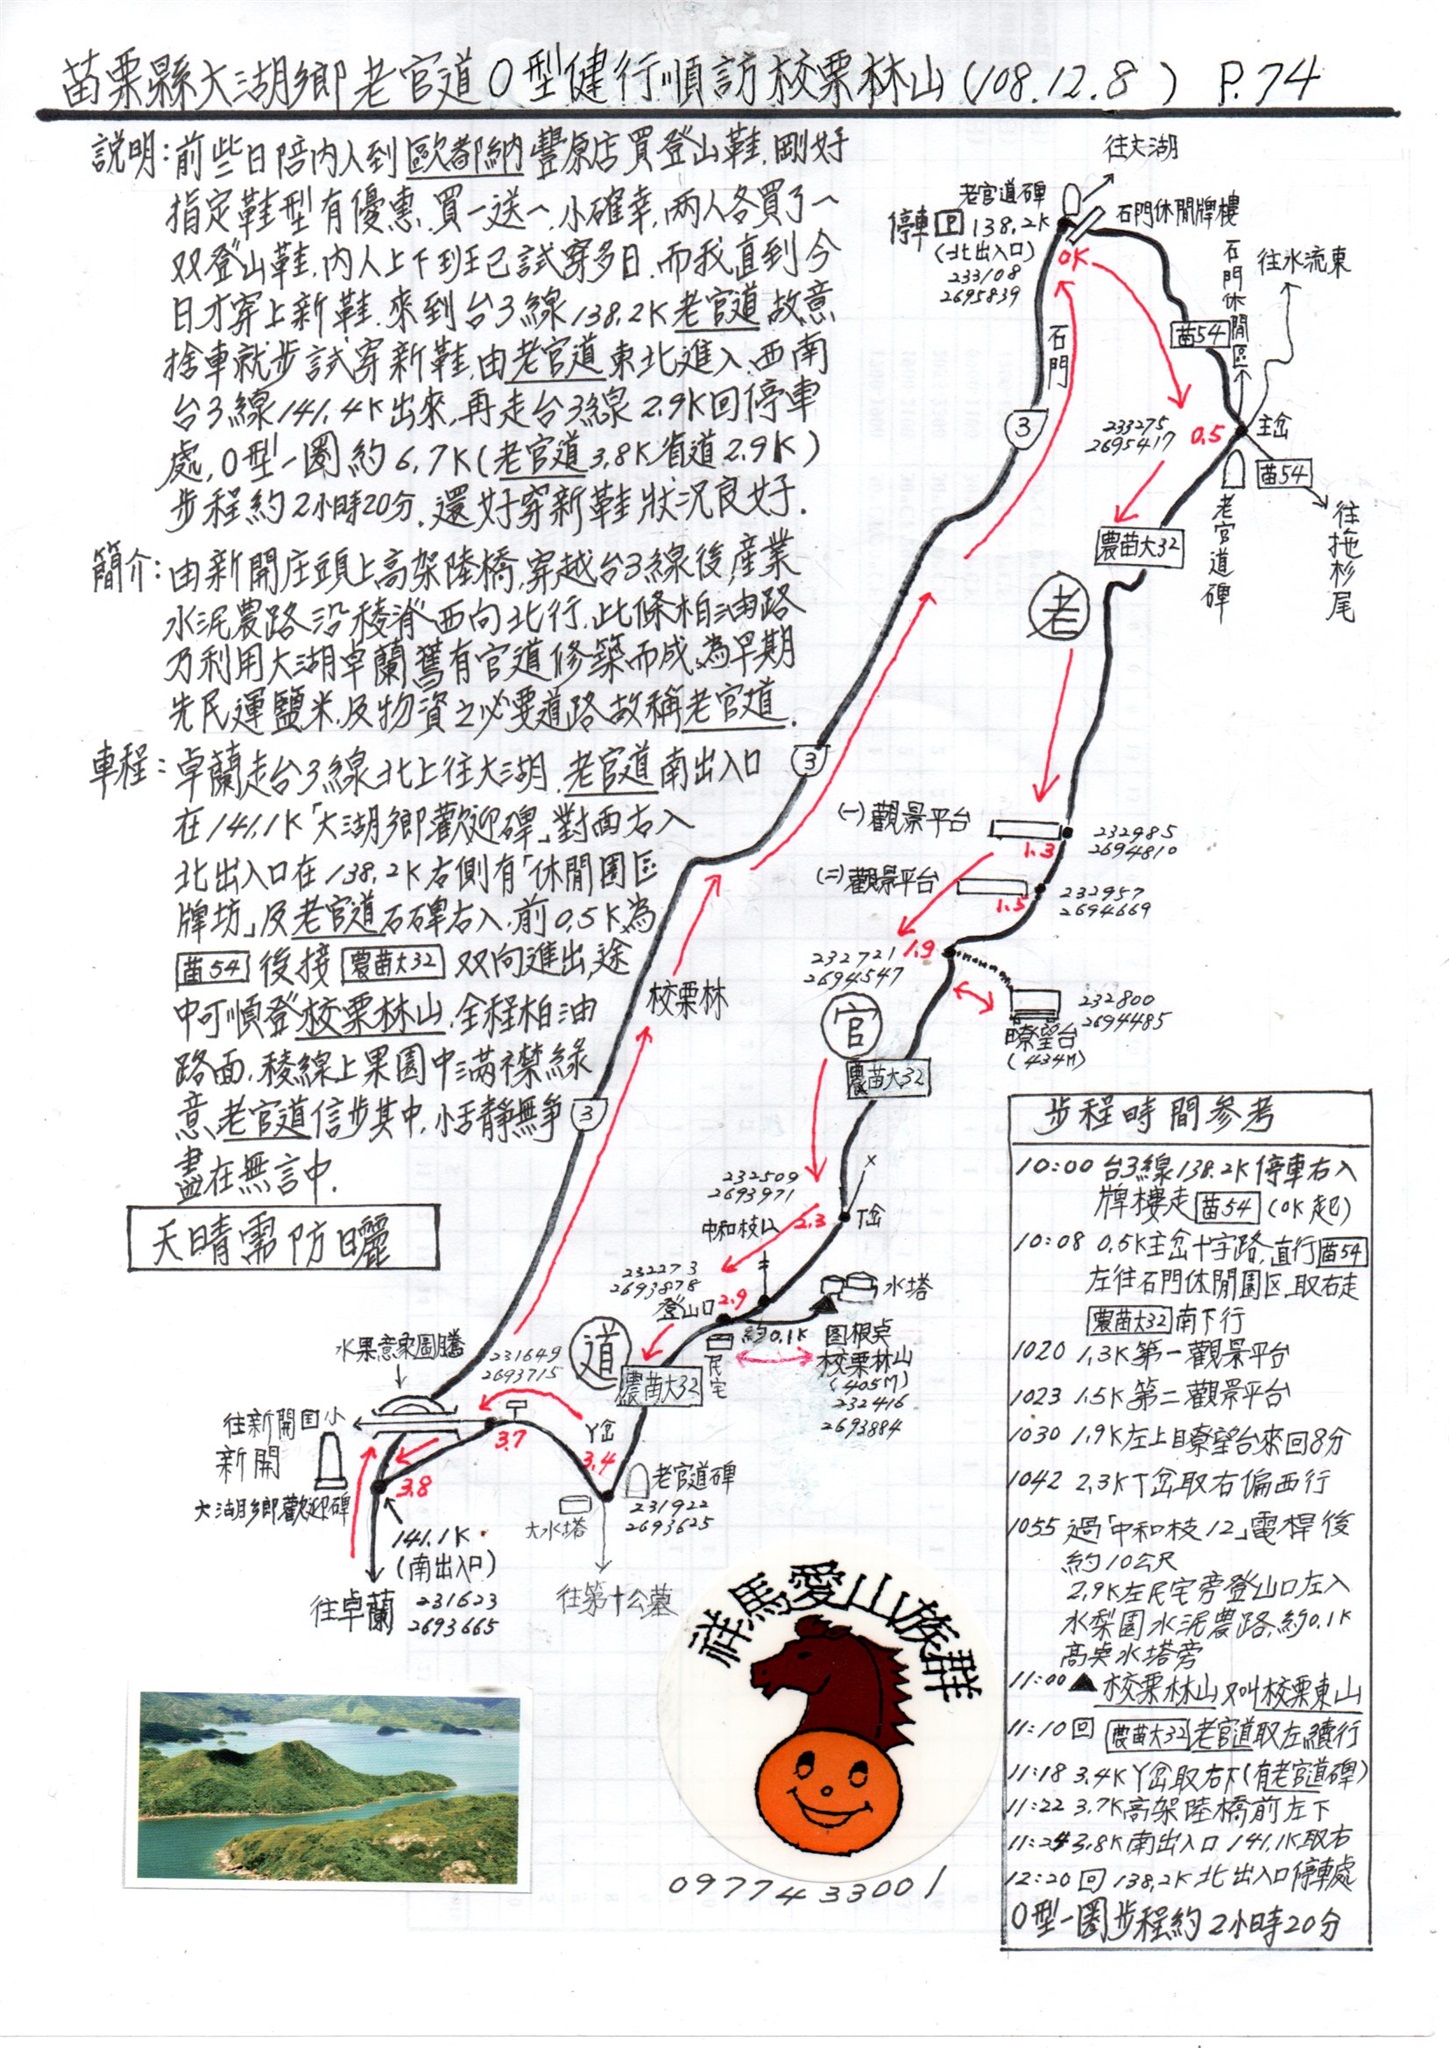 苗栗縣大湖鄉老官道O型健行順訪校栗林山(108.12.8) P.74
說明:前些日陪內人到歐都納豐原店買登山鞋.剛好
指定鞋型有優惠.買一送一.小確幸.兩人各買了一
双登山鞋.內人上下到王已試穿多日.而我直到今
日才穿上新鞋.來到台3線138.2K老官道故意
捨車就步試穿新鞋.由老官道東北進入.西南
台3線141.4K出來.再走台3線2.9K回停車
處.O型一圈約6.7K(老官道3.8K省道2.9K)
步程約2小時20分.還好穿新鞋狀況良好.
簡介:由新開庄頭上高架陸橋.穿越台3線後.產業
水泥農路沿稜脊西向北行.此條柏油路
乃利用大湖卓蘭舊有官道修築而成.為早期
先民運鹽米.及物資之必要道路故稱老官道.
車程:卓蘭走台3線北上往大湖.老官道南出入口
在141.1K「大湖鄉歡迎碑」對面右入
北出入口在138.2K右側有「休閒園區
牌坊」及老官道石碑右入.前0.5K為
苗54後接農苗大32双向進出.途
中可順登校栗林山.全程柏油
路面.稜線上果園中滿襟綠
意.老官道信步其中.恬靜無爭
盡在無言中.
天晴需防曬
往大湖
老官道碑
停車P138.2K
(北出入口)
233108
2695839
石門休閒牌樓
0K
石門休閒區
往水流東
苗54
石門
3
233275
2695417
0.5
主岔
苗54
老官道碑
往拖杉尾
農苗大32
老
3
(一)觀景平台
1.3
232985
2694810
(二)觀景平台
1.5
232957
2694669
1.9
232721
2694547
校栗林
官
232800
2694485
瞭望台
(434M)
農苗大32
3
232509
2693971
X
2.3
T岔
中和枝12
232273
2693878
登山口
2.9
水塔
約0.1K
民宅
图根点
校栗林山
(405M)
232416
2693884
道
農苗大32
水果意象圖騰
231649
2693715
往新開国小
新開
大湖鄉歡迎碑
3.7
Y岔
3.4
3.8
老官道碑
231922
2693625
大水塔
141.1K
(南出入口)
往卓蘭
231623
2693665
往第十公墓
步程時間參考
10:00 台3線138.2K停車右入
牌樓走苗54(0K起)
10:08 0.5K主岔十字路.直行苗54
左往石門休閒園区.取右走
農苗大32南下行
1020 1.3K第一觀景平台
1023 1.5K第二觀景平台
1030 1.9K左上瞭望台來回8分
1042 2.3K T岔取右偏西行
1055 過「中和枝12」電桿後
約10公尺
2.9K左民宅旁登山口左入
水梨園水泥農路.約0.1K
高點水塔旁
11:00▲校栗林山又叫校栗東山
11:10回農苗大32老官道取左續行
11:18 3.4K Y岔取右下(有老官道碑)
11:22 3.7K高架陸橋前左下
11:24 3.8K南出入口141.1K取右
12:20回138.2K北出入口停車處
O型一圈步程約2小時20分
祥馬愛山族群
0977433001